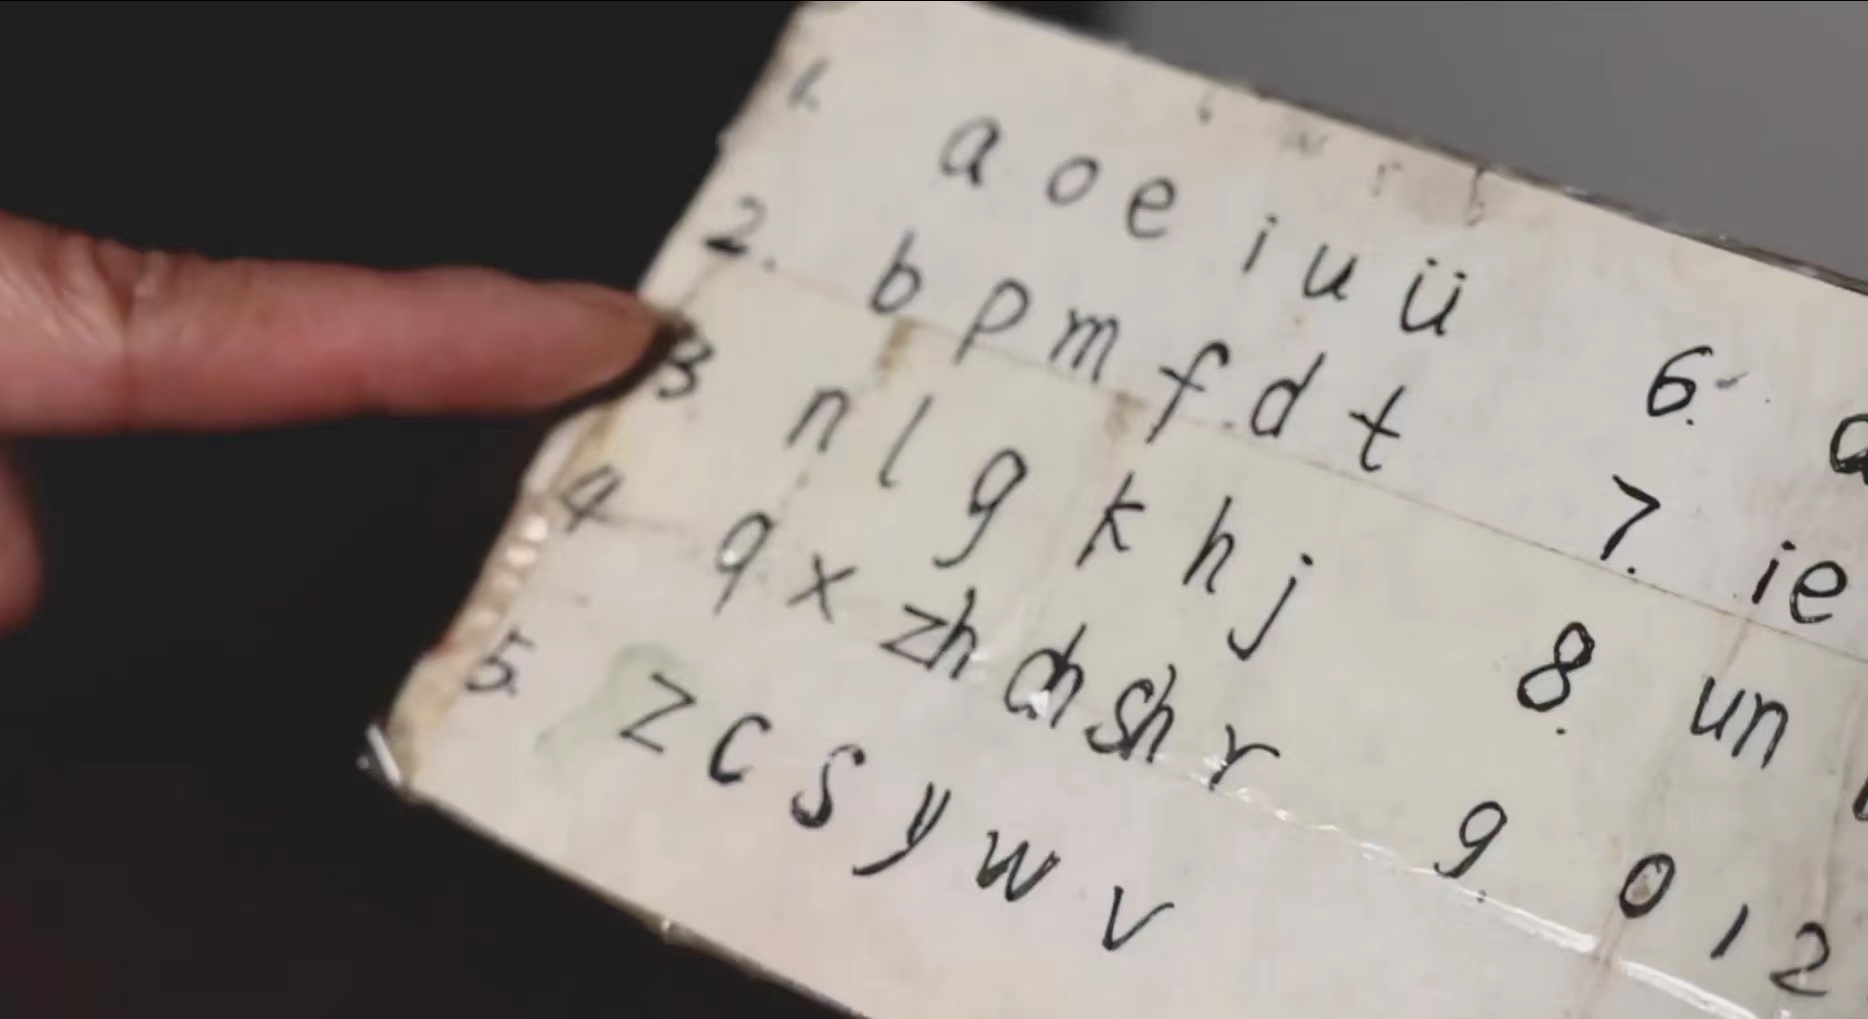 1. a o e i u ü
2. b p m f d t
3 n l g k h j
4 q x zh ch sh r
5. z c s y w v
6.
7. ie
8. un
9. 0 1 2